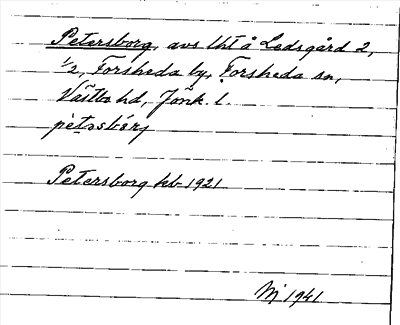 Petersborg, avs lht å Ledsgård 2,
1/2, Forsheda by, Forsheda sn,
Västbo hd, Jönk. l.
pètəsbórj
Petersborg kb 1921
1941